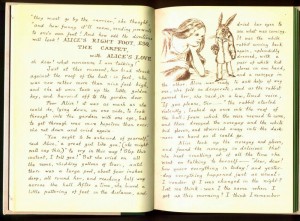 "They must go by the carrier," she thought,
"and how funny it'll seem, sending presents
to one's own feet! And how odd the directions
will look! ALICE'S RIGHT FOOT, ESQ.
THE CARPET,
with ALICE'S LOVE
oh dear! what nonsense I am talking!"
Just at this moment, her head struck
against the roof of the hall: in fact, she
was now rather more than nine feet high,
and she at once took up the little golden
key, and hurried off to the garden door.
Poor Alice! it was as much as she
could do, lying down on one side, to look
through into the garden with one eye, but
to get through was more hopeless than ever:
she sat down and cried again.
"You ought to be ashamed of yourself,"
said Alice, "a great girl like you," (she might
well say this,) "to cry in this way! Stop this
instant, I tell you!" But she cried on all
the same, shedding gallons of tears, until
there was a large pool, about four inches
deep, all round her, and reaching half way
across the hall. After a time, she heard a
little pattering of feet in the distance, and
dried her eyes to
see what was coming.
It was the white
rabbit coming back
again, splendidly
dressed, with a
pair of white kid
gloves in one hand,
and a nosegay in
the other. Alice was ready to ask help of any
one, she felt so desperate, and as the rabbit
passed her, she said, in a low, timid voice,
"If you please, Sir——" the rabbit started
violently, looked up once into the roof of
the hall, from which the voice seemed to come,
and then dropped the nosegay and the white
kid gloves, and skurried away into the darkness,
as hard as it could go.
Alice took up the nosegay and gloves,
and found the nosegay so delicious that
she kept smelling at it all the time she
went on talking to herself——"dear, dear!
how queer everything is today! and yesterday
everything happened just as usual:
I wonder if I was changed in the night?
Let me think: was I the same when I
got up this morning? I think I remember